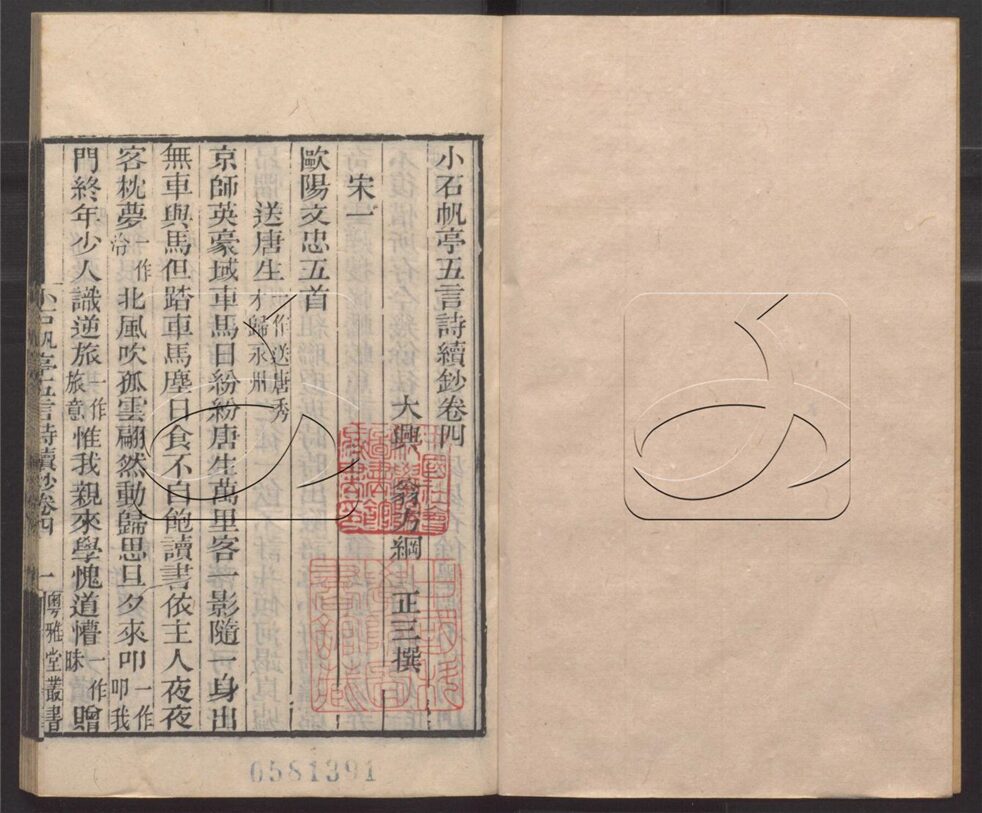 小石帆亭五言詩續鈔卷四
大興翁方綱正三撰
宋一
歐陽文忠五首
送唐生一作送唐秀才歸永州
京師英豪域車馬日紛紛唐生萬里客一影隨一身出
無車與馬但踏車馬塵日食不自飽讀書依主人夜夜
客枕夢一作冷北風吹孤雲翩然動歸思旦夕來叩一作叩我
門終年少人識逆旅一作旅意惟我親來學愧道懵一作昧贈
小石帆亭五言詩續鈔卷四 一 粵雅堂叢書
0581391